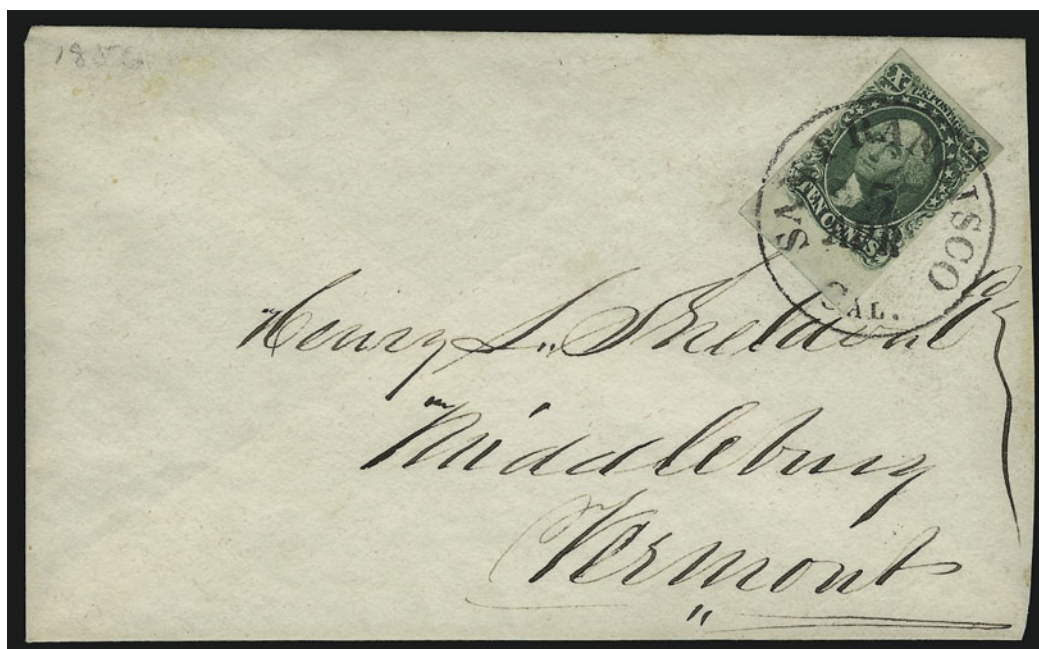 1856
X U.S. POSTAGE X
TEN CENTS
SAN FRANCISCO
APR
CAL.
Henry L. Sheldon
Middlebury
Vermont